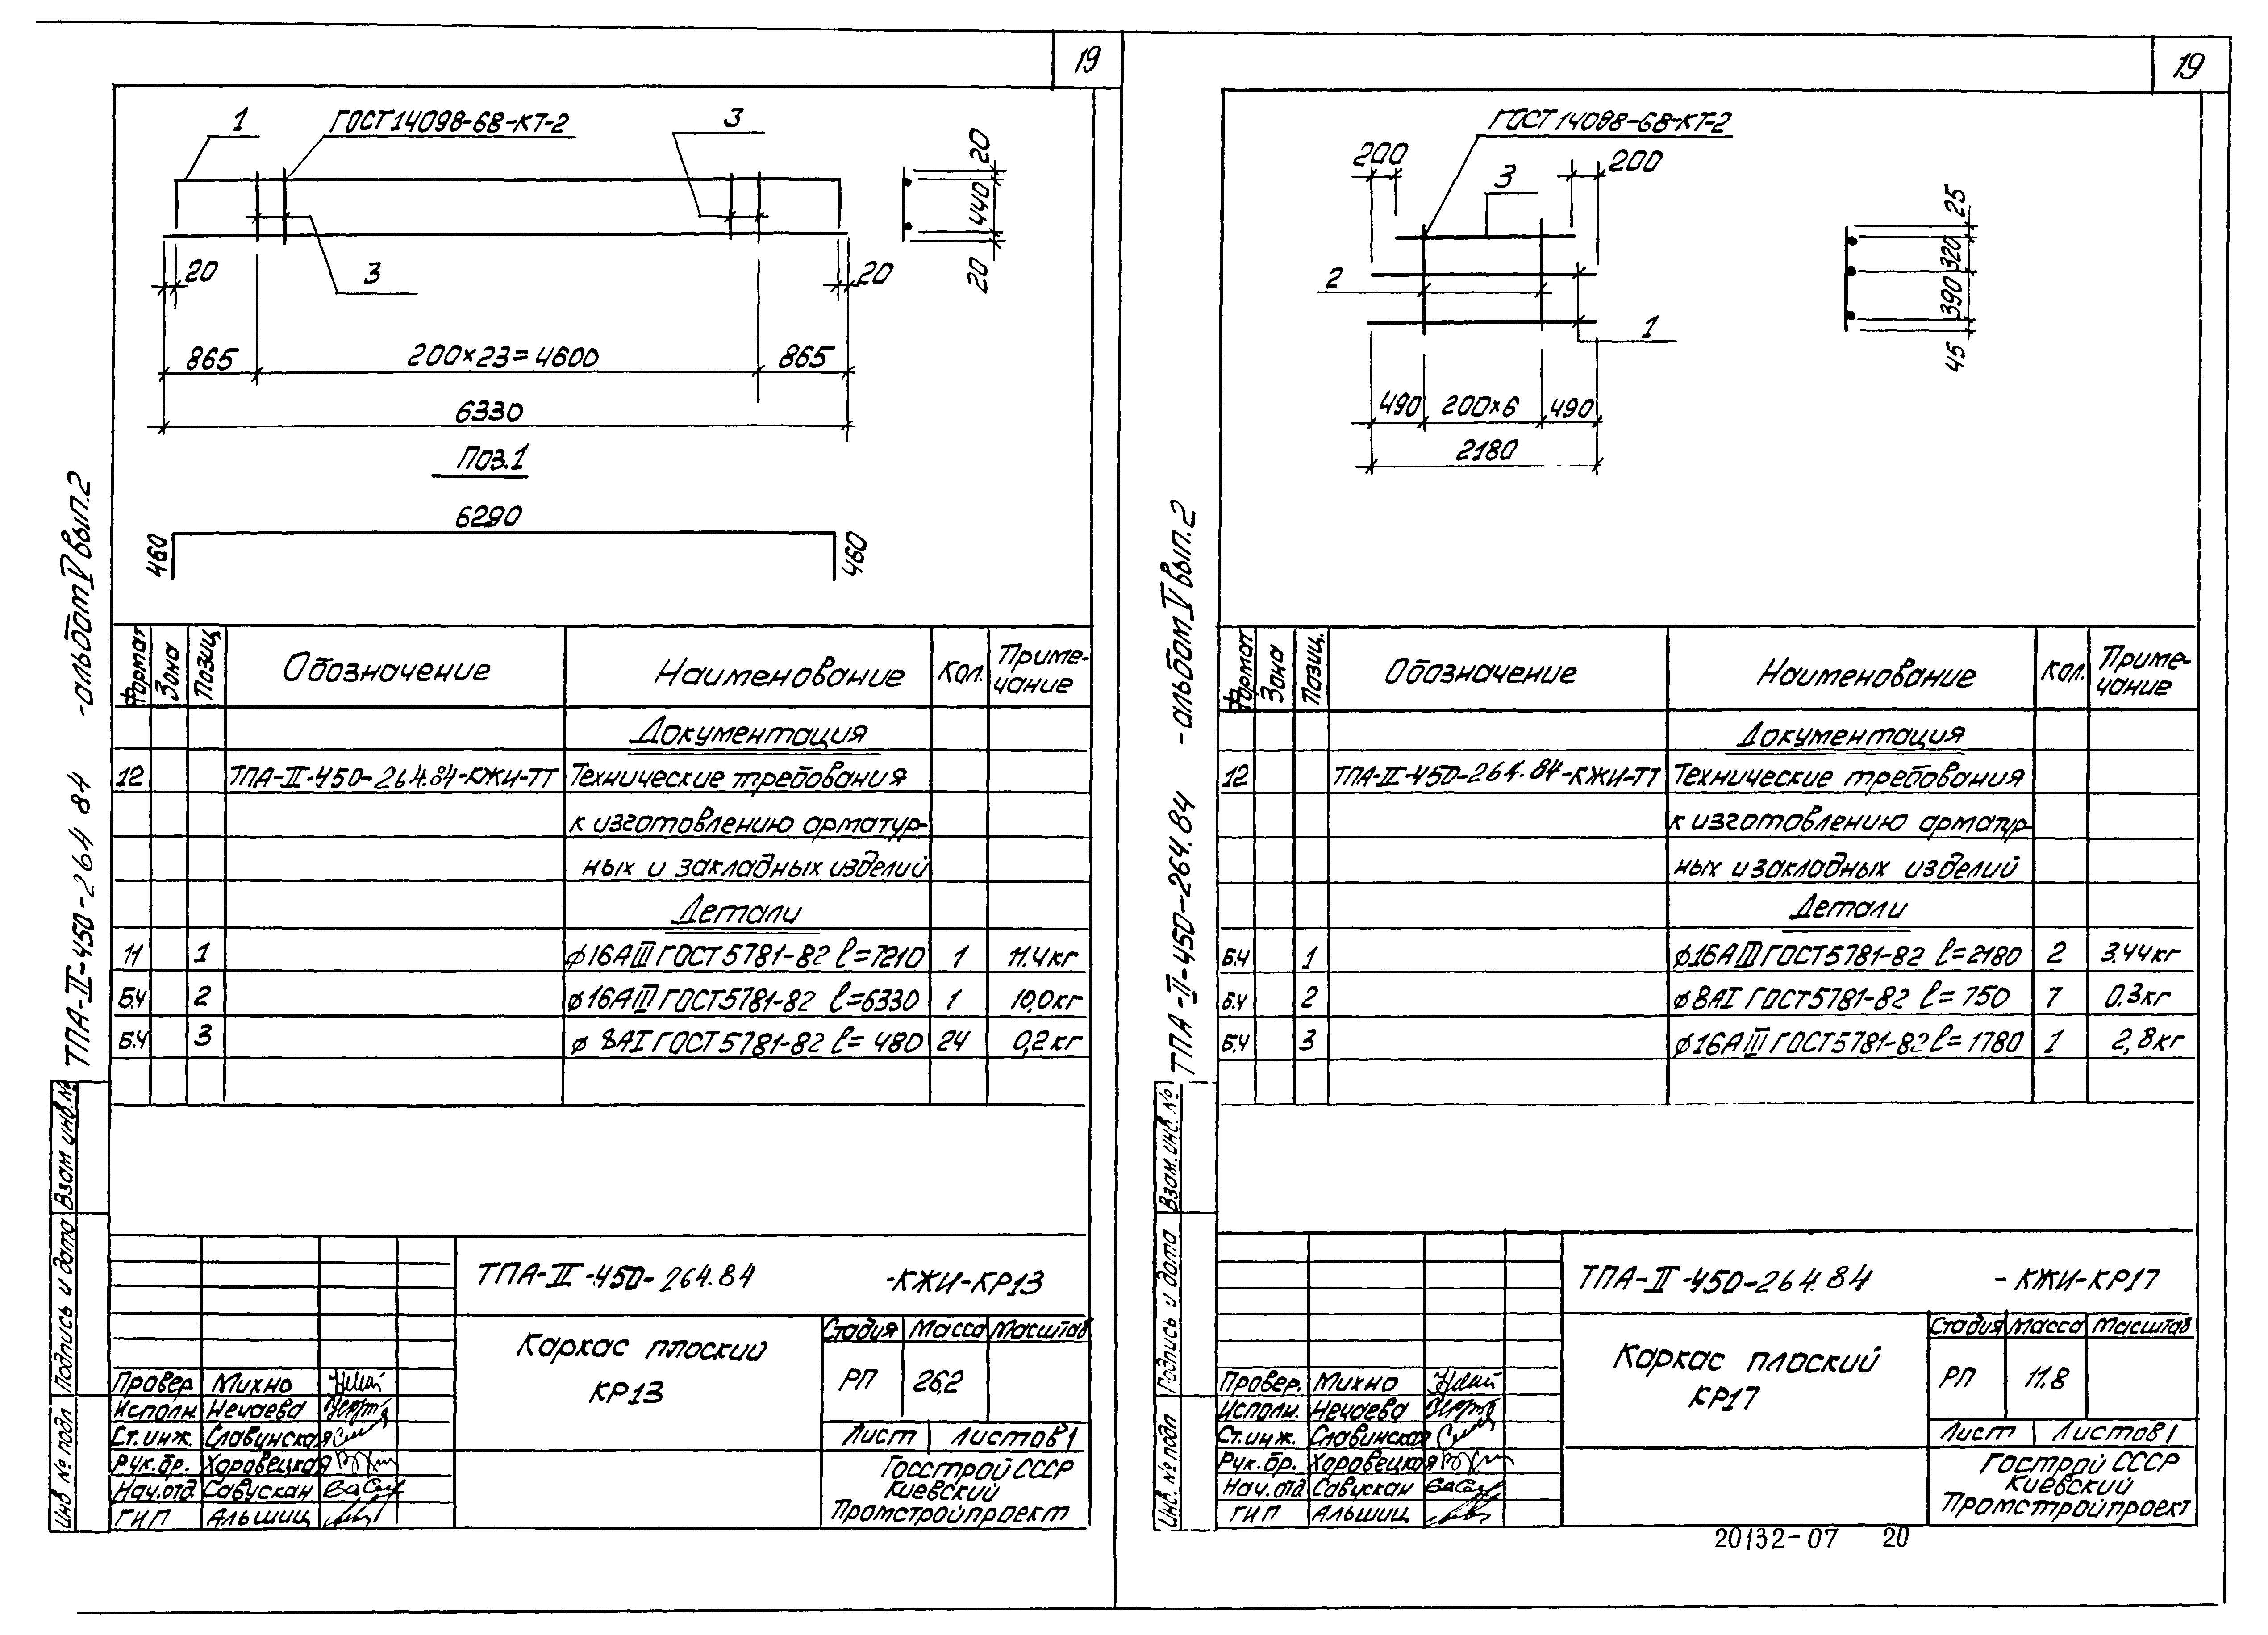 19
1
ГОСТ 14098-68-КТ-2
3
20
440
20
20
3
20
865
200×23=4600
865
6330
Поз.1
6290
460
460
Формат
Зона
Позиц.
Обозначение
Наименование
Кол.
Приме-
чание
Документация
12 ТПА-II-450-264.84-КЖИ-ТТ Технические требования
к изготовлению арматур-
ных и закладных изделий
Детали
11 1 ϕ16АIII ГОСТ 5781-82 ℓ=7210 1 11.4кг
Б.Ч 2 ϕ16АIII ГОСТ 5781-82 ℓ=6330 1 10,0кг
Б.Ч 3 ϕ 8АI ГОСТ 5781-82 ℓ= 480 24 0,2кг
ТПА-II-450-264 84 -альбом V вып.2
Взам инв.№
Подпись и дата
Инв № подл
ТПА-II-450-264.84 -КЖИ-КР13
Каркас плоский
КР13
Стадия Масса Масштаб
РП 26,2
Лист Листов 1
Госстрой СССР
Киевский
Промстройпроект
Провер Михно
Исполн. Нечаева
Ст.инж. Славинская
Рук.бр. Харавецкая
Нач.отд Савускан
ГИП Альшиц
19
ГОСТ 14098-68-КТ-2
200
200
3
2
1
25
320
390
45
490
200×6
490
2180
Формат
Зона
Позиц.
Обозначение
Наименование
Кол.
Приме-
чание
Документация
12 ТПА-II-450-264.84-КЖИ-ТТ Технические требования
к изготовлению арматур-
ных и закладных изделий
Детали
Б.Ч 1 ϕ16АIII ГОСТ 5781-82 ℓ=2180 2 3.44кг
Б.Ч 2 ϕ8АI ГОСТ 5781-82 ℓ= 750 7 0.3кг
Б.Ч 3 ϕ16АIII ГОСТ 5781-82 ℓ= 1780 1 2,8кг
ТПА-II-450-264.84 -альбом V вып.2
Взам.инв.№
Подпись и дата
Инв. № подл
ТПА-II-450-264.84 -КЖИ-КР17
Каркас плоский
КР17
Стадия Масса Масштаб
РП 11.8
Лист Листов 1
Гострой СССР
Киевский
Промстройпроект
Провер. Михно
Исполн. Нечаева
Ст.инж. Славинская
Рук.бр. Харавецкая
Нач.отд Савускан
ГИП Альшиц
20132-07 20